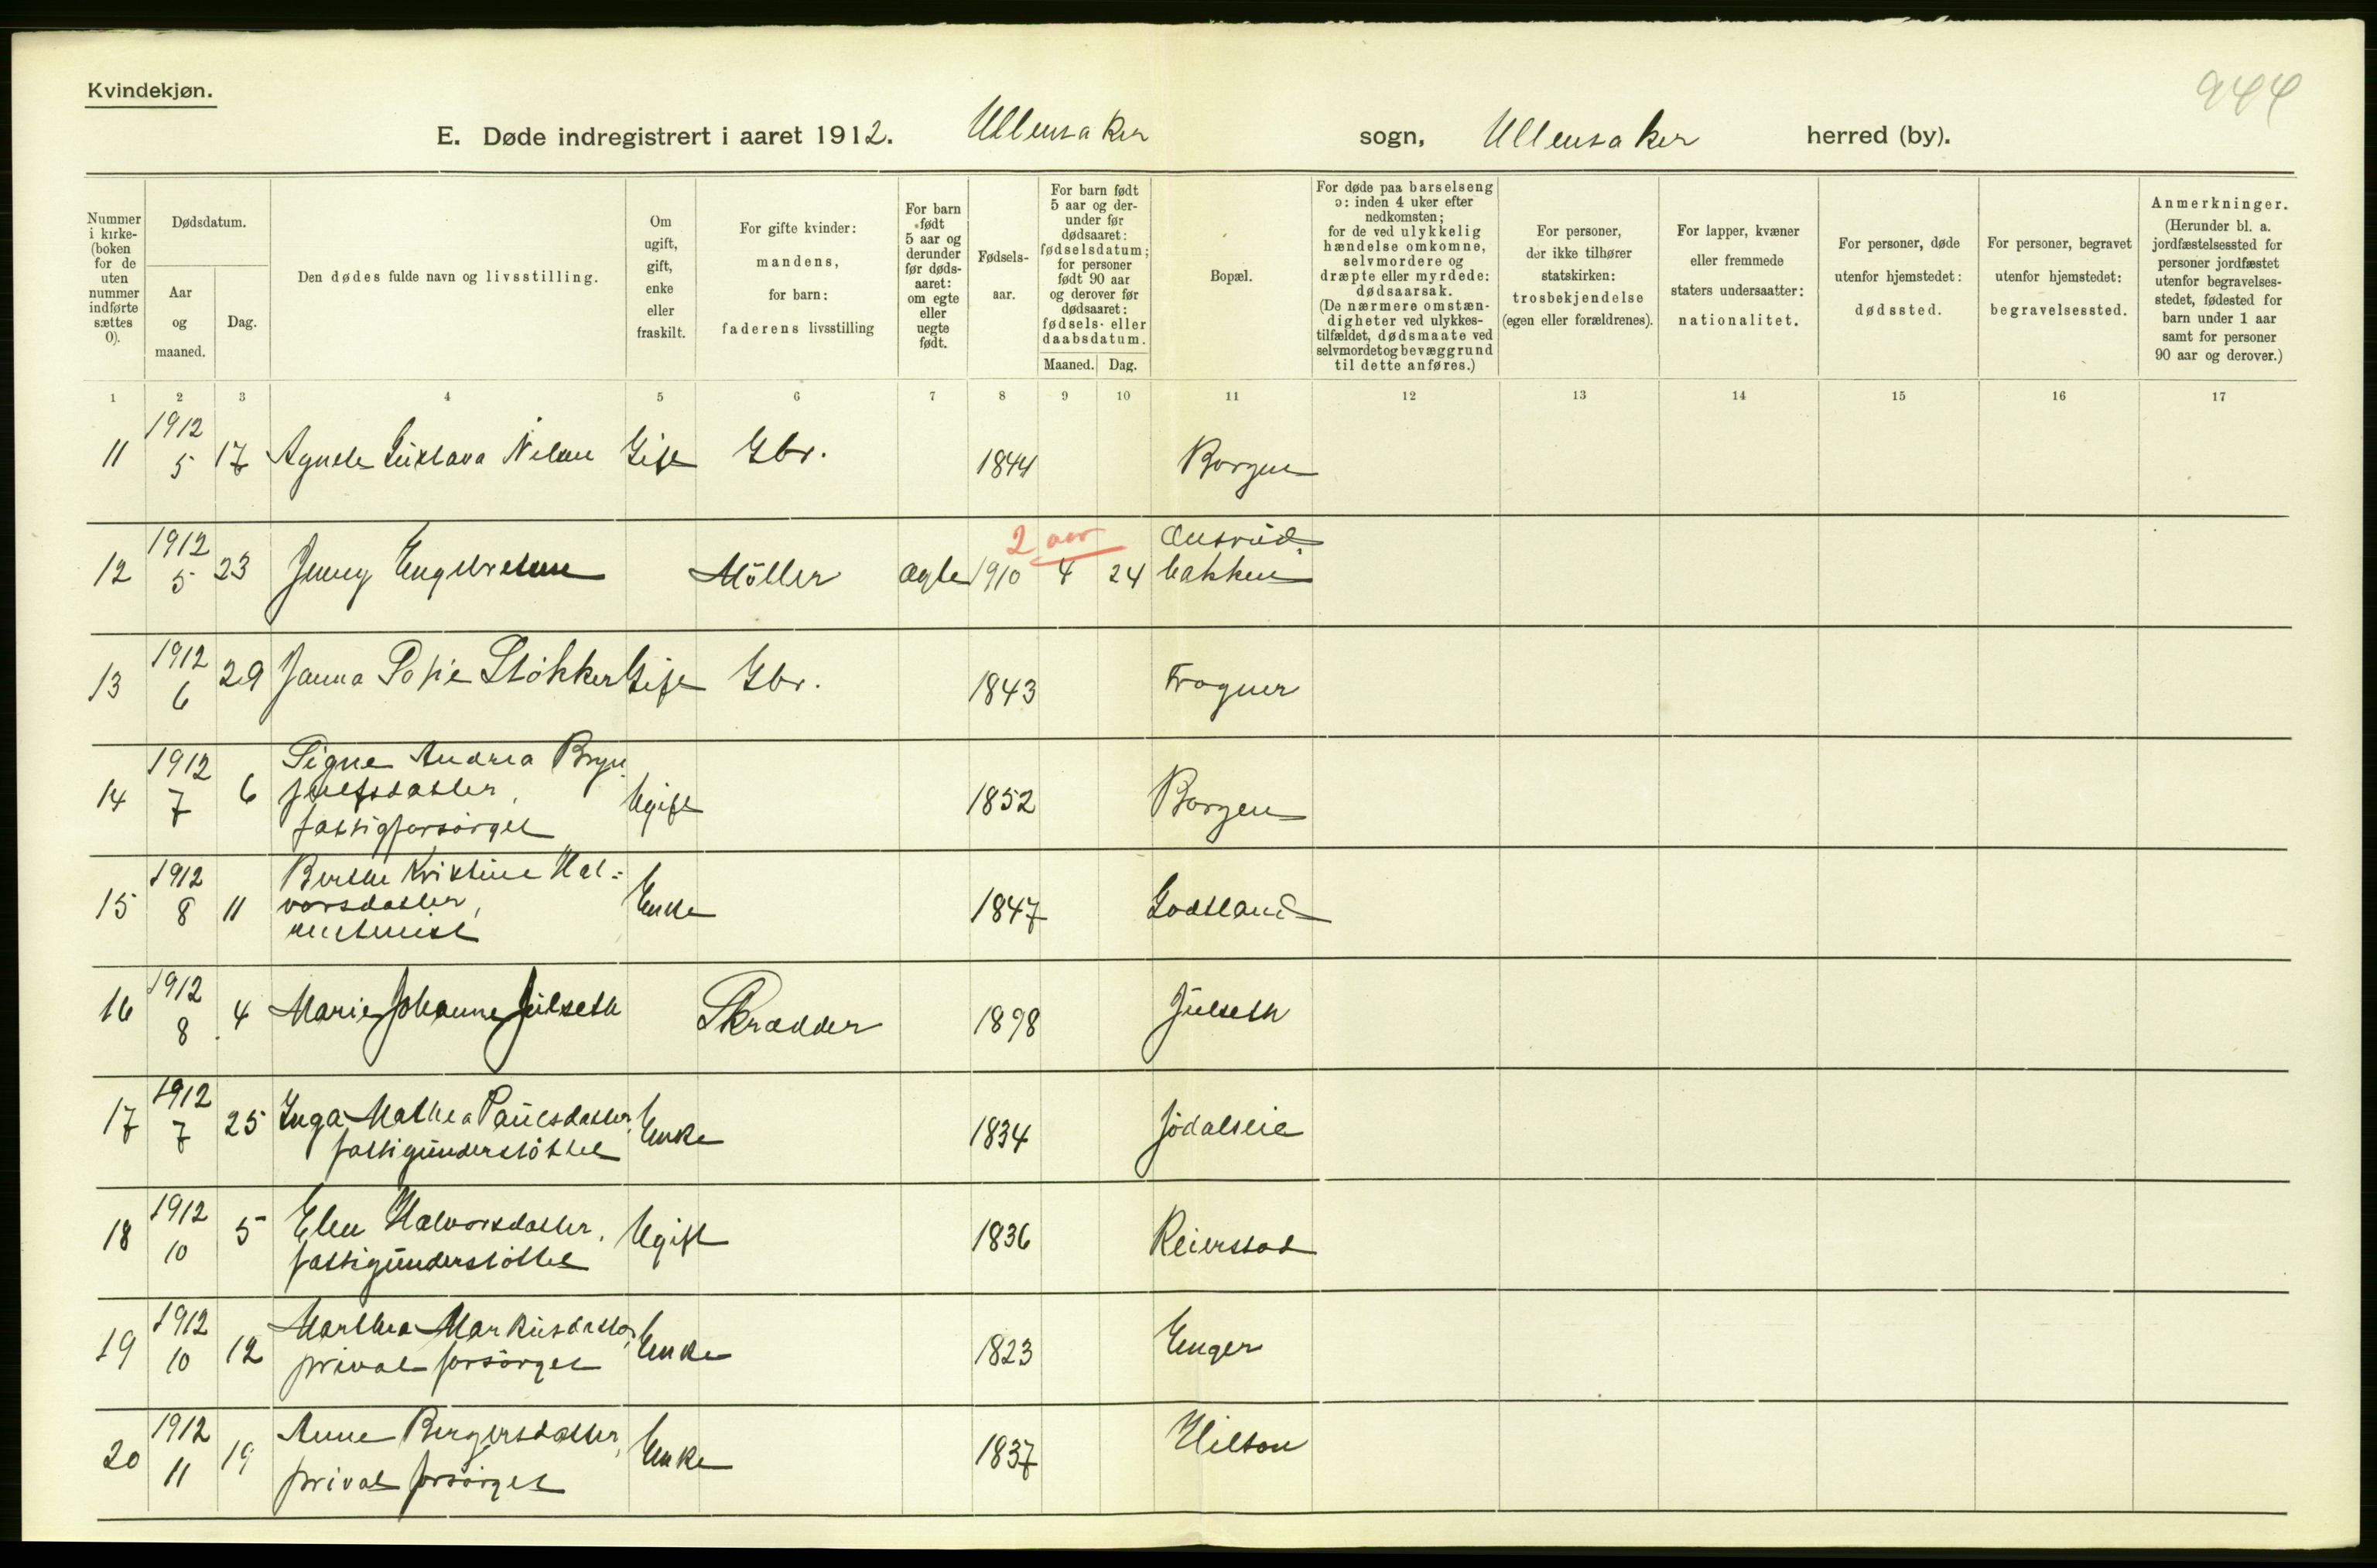 Kvindekjøn.
944
E. Døde indregistrert i aaret 1912. Ullensaker sogn, Ullensaker herred (by).
Nummer i kirke- (boken for de uten nummer indførte sættes 0).
Dødsdatum.
Aar og maaned.
Dag.
Den dødes fulde navn og livsstilling.
Om ugift, gift, enke eller fraskilt.
For gifte kvinder: mandens, for barn: faderens livsstilling
For barn født 5 aar og derunder før døds- aaret: om egte eller uegte født.
Fødsels- aar.
For barn født 5 aar og der- under før dødsaaret: fødselsdatum; for personer født 90 aar og derover før dødsaaret: fødsels- eller daabsdatum.
Maaned. Dag.
Bopæl.
For døde paa barselseng ɔ: inden 4 uker efter nedkomsten; for de ved ulykkelig hændelse omkomne, selvmordere og dræpte eller myrdede: dødsaarsak. (De nærmere omstæn- digheter ved ulykkes- tilfældet, dødsmaate ved selvmordet og bevæggrund til dette anføres.)
For personer, der ikke tilhører statskirken: trosbekjendelse (egen eller forældrenes).
For lapper, kvæner eller fremmede staters undersaatter: nationalitet.
For personer, døde utenfor hjemstedet: dødssted.
For personer, begravet utenfor hjemstedet: begravelsessted.
Anmerkninger. (Herunder bl. a. jordfæstelsessted for personer jordfæstet utenfor begravelses- stedet, fødested for barn under 1 aar samt for personer 90 aar og derover.)
1 2 3 4 5 6 7 8 9 10 11 12 13 14 15 16 17
11 1912 5 17 Agnete Gustava Nilsen Gift Gbr. 1844 Borgen
2 aar
12 1912 5 23 Jenny Engebretsen Möller ægte 1910 4 24 Ausrud bakken
13 1912 6 29 Janna Sofie Stökker Gift Gbr. 1843 Frogner
14 1912 7 6 Signe Andrea Bryn
julfsdatter,
fattigforsörget Ugift 1852 Borgen
15 1912 8 11 Berthe Kristine Hal=
vorsdatter,
Enke 1847 Godtland
16 1912 8 4 Marie Johanne Julseth Skrædder 1898 Julseth
17 1912 7 25 Inga Mathea Paulsdatter,
fattigunderstöttet Enke 1834 Jödalseie
18 1912 10 5 Elen Halvorsdatter,
fattigunderstöttet Ugift 1836 Reierstad
19 1912 10 12 Marthea Markusdatter,
privat forsörget Enke 1823 Enger
20 1912 11 19 Anne Bergersdatter,
privat forsörget Enke 1837 Hilton